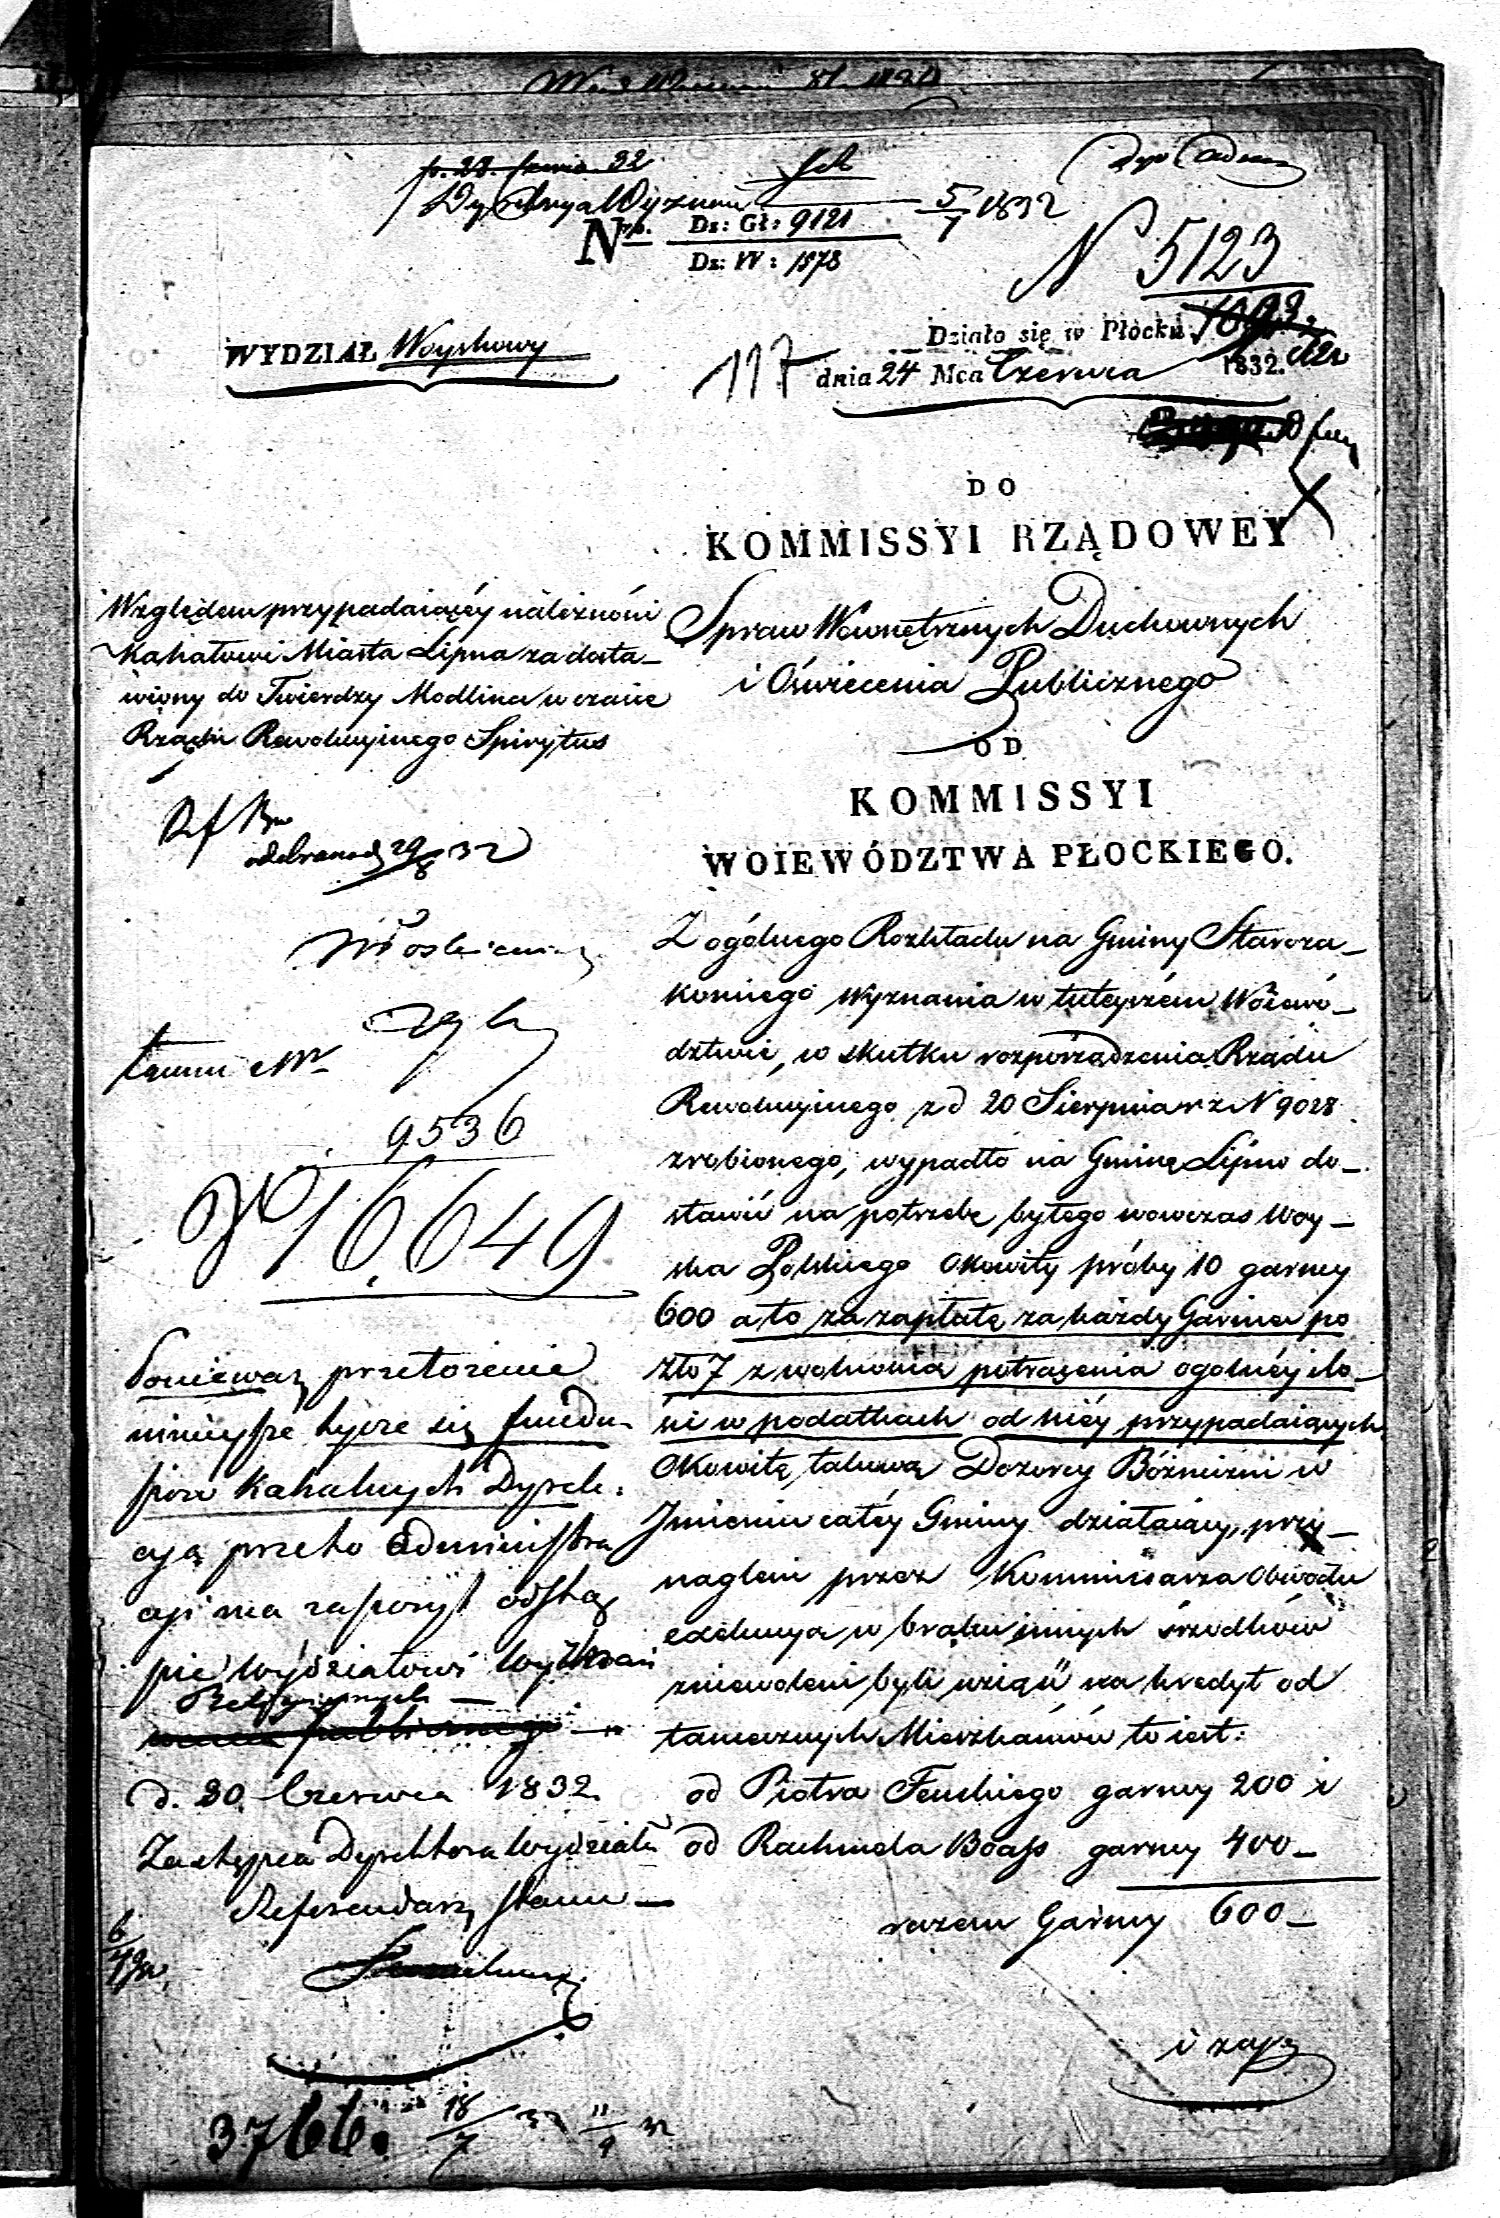 Dyrekcya Wyznań
5/7 1832
Nro. Dz: Gł: 9121
Dz: W: 1878
N 5123
WYDZIAŁ Woyskowy
Działo się w Płocku
117
dnia 24 Mca Czerwca 1832.
DO
KOMMISSYI RZĄDOWEY
Spraw Wewnętrznych Duchownych
i Oświecenia Publicznego
OD
KOMMISSYI
WOIEWÓDZTWA PŁOCKIEGO.
Względem przypadaiącéy należności
Kahałowi Miasta Lipna za dosta-
wiony do Twierdzy Modlina w czasie
Rządu Rewolucyinego Spirytus
odebrano d 29/6 32
9536
N 16649
Ponieważ przełożenie
ninieysze tycze się fundu-
szów Kahalnych Dyrek-
cya przeto Administra
cyi ma zaszczyt odstą
pić Wydziałowi Wyznań
Religijnych —
d. 30. Czerwca 1832
Zastępca Dyrektora Wydziału
Referendarz Stanu —
3766.
18/7 32 11/9 32
Z ogólnego Rozkładu na Gminy Staroza-
konnego Wyznania w tuteyszém Woiewó-
dztwie, w skutku rozporządzenia Rządu
Rewolucyinego z d 20 Sierpnia r z N 9028
zrobionego, wypadło na Gminę Lipno do-
stawić na potrzebę byłego wowczas Woy-
ska Polskiego Okowity próby 10 garncy
600 a to za zapłatą za każdy Garniec po
Złp 7 z wolnością potrącenia ogolnéy ilo-
ści w podatkach od niéy przypadaiących.
Okowitę takową Dozorcy Bóżniczni w
Imieniu całéy Gminy działaiący, przy-
nagleni przez Kommissarza Obwodu
exekucyą w braku innych środków
zniewoleni byli wziąść na kredyt od
tamecznych Mieszkańców to iest:
od Piotra Fenskiego garncy 200 i
od Rachmila Boass garncy 400 -
razem Garncy 600 -
i zapę